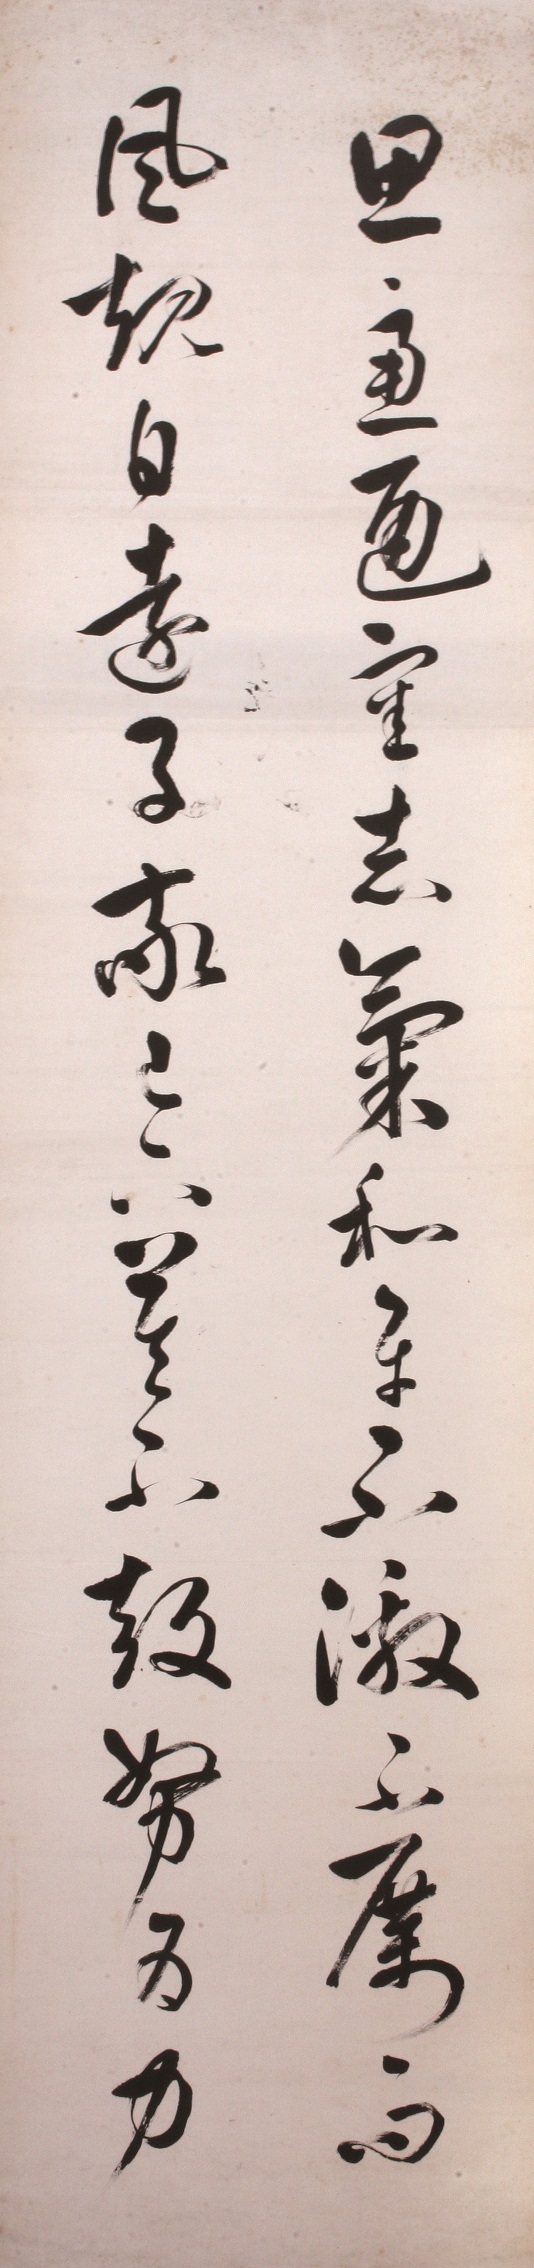 思慮通審志氣和平不激不厲而
風規自遠子敬已下莫不鼓努為力